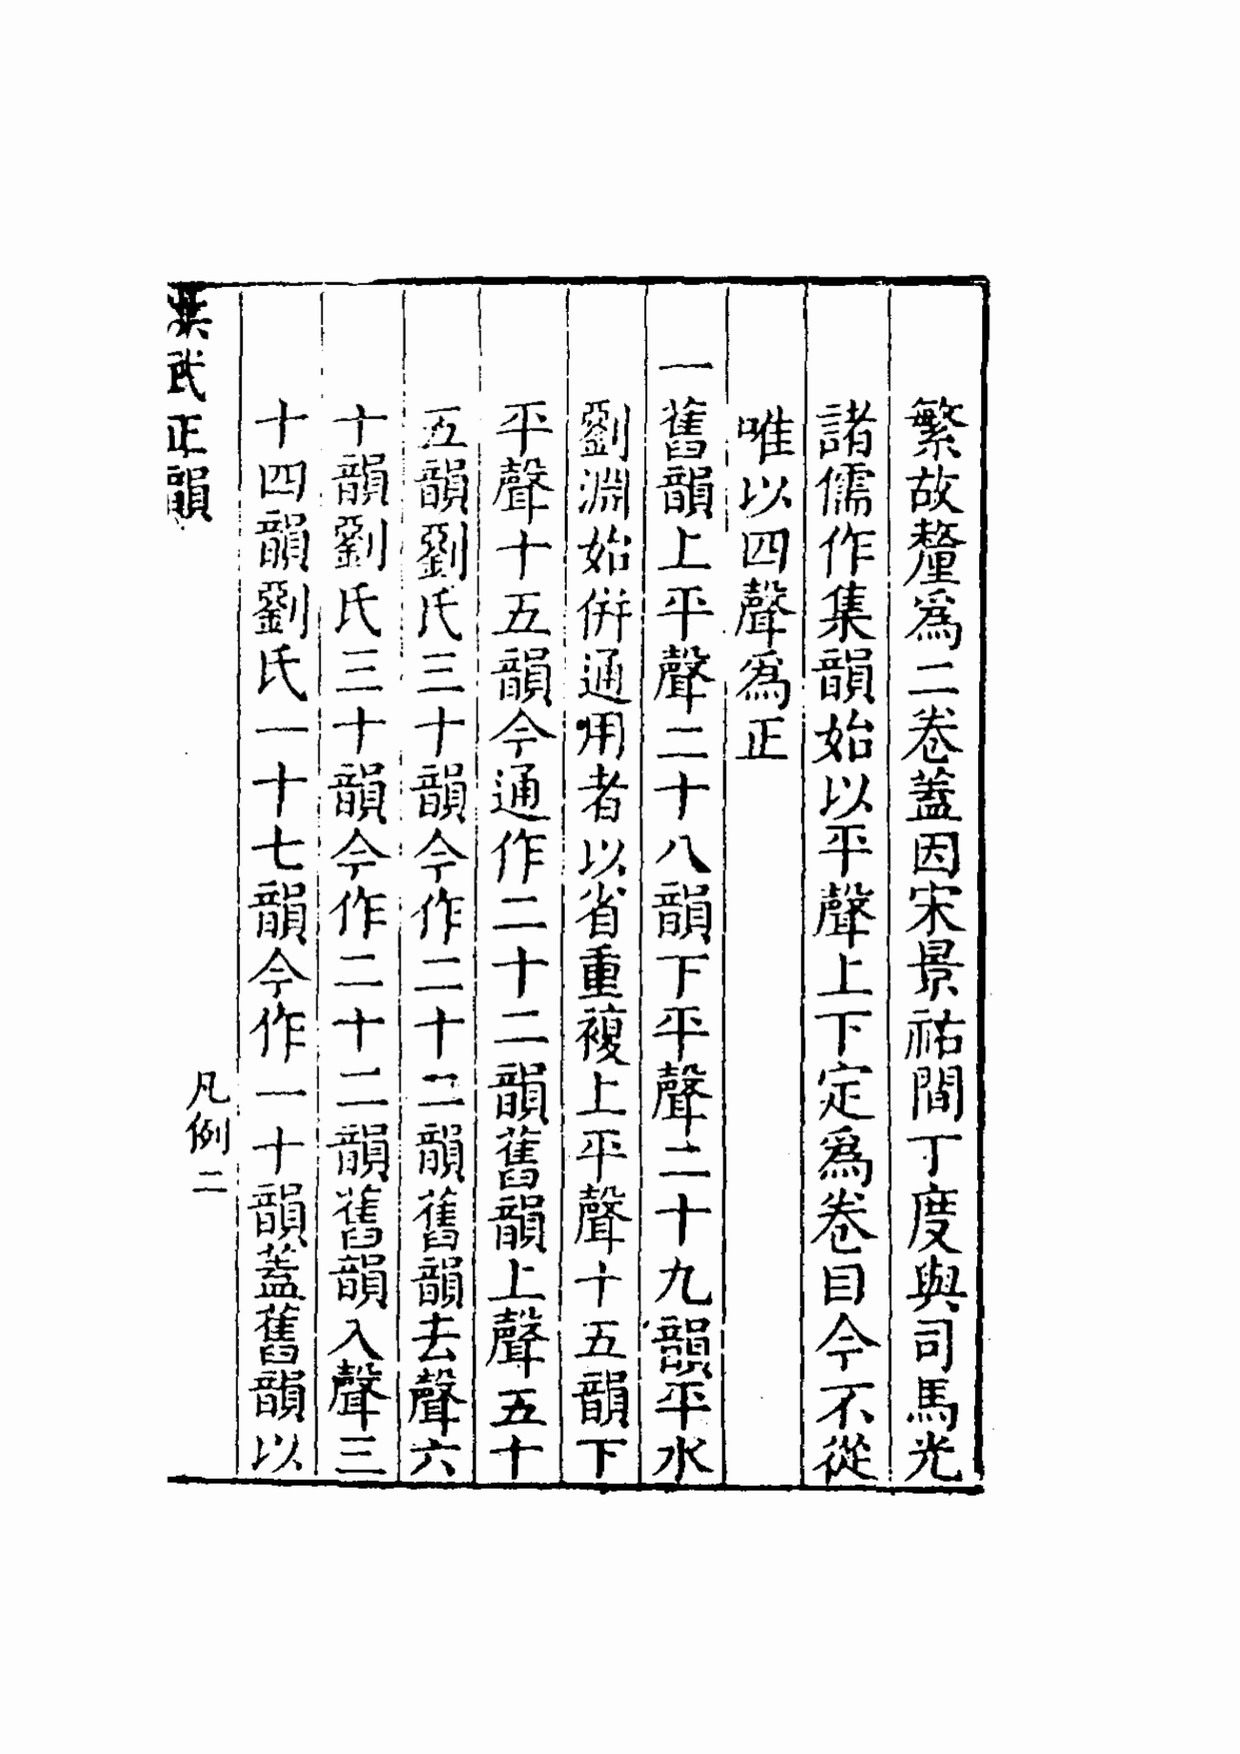 繁故釐爲二卷蓋因宋景祐間丁度與司馬光
諸儒作集韻始以平聲上下定爲卷目今不從
唯以四聲爲正
一舊韻上平聲二十八韻下平聲二十九韻平水
劉淵始併通用者以省重複上平聲十五韻下
平聲十五韻今通作二十二韻舊韻上聲五十
五韻劉氏三十韻今作二十二韻舊韻去聲六
十韻劉氏三十韻今作二十二韻舊韻入聲三
十四韻劉氏一十七韻今作一十韻蓋舊韻以
洪武正韻
凡例二